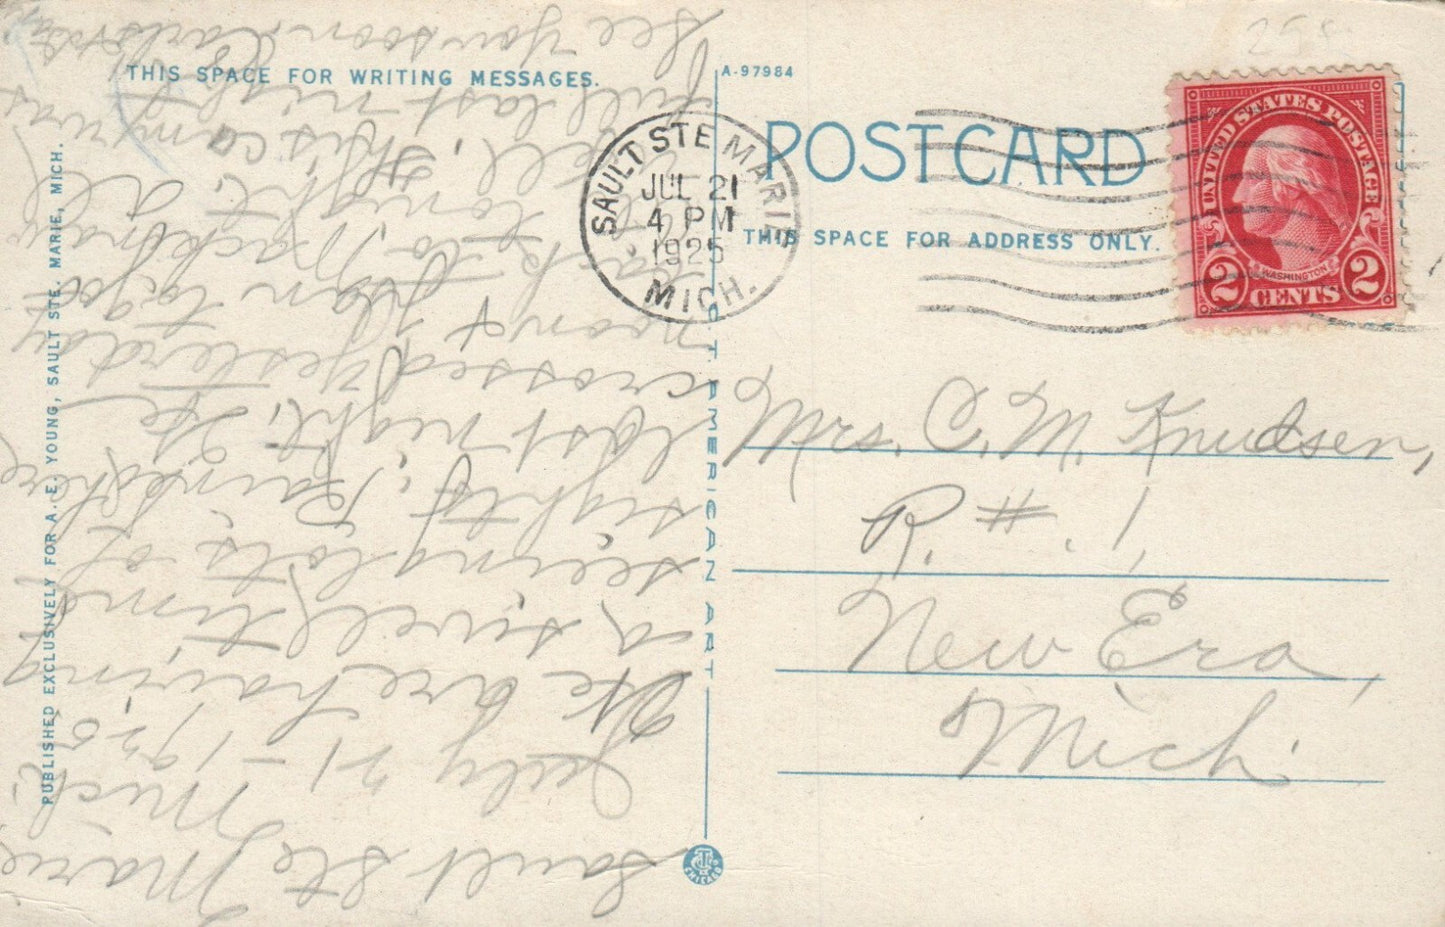 THIS SPACE FOR WRITING MESSAGES.
Sault Ste Marie,
Mich.
July 21-1925
We are having
a swell time
seeing lots of
sights. Rained here
last night. We
crossed yesterday
noon & plan to go
back to Mackinaw
tonight. All
well. This camp was
full last night
See you soon
PUBLISHED EXCLUSIVELY FOR A. E. YOUNG, SAULT STE. MARIE, MICH.
A-97984
POST CARD
THIS SPACE FOR ADDRESS ONLY.
SAULT STE MARIE
JUL 21
4 PM
1925
MICH.
UNITED STATES POSTAGE
WASHINGTON
2 CENTS 2
AMERICAN ART
CHICAGO
Mrs. C. M. Knudsen,
R. #. 1,
New Era,
Mich.